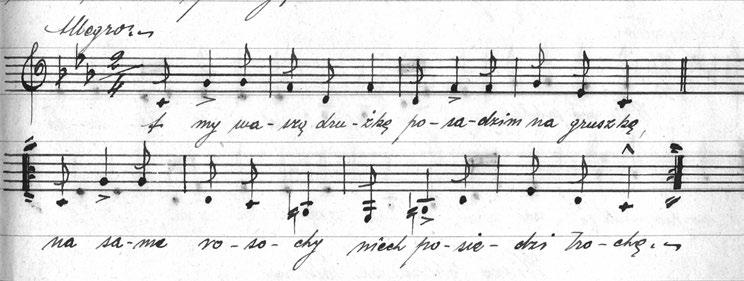 Allegro
2/4
A my wa-szą dru-żkę po-sa-dzim na gruszkę,
na sa-me ro-so-chy niech po-sie-dzi tro-chę.